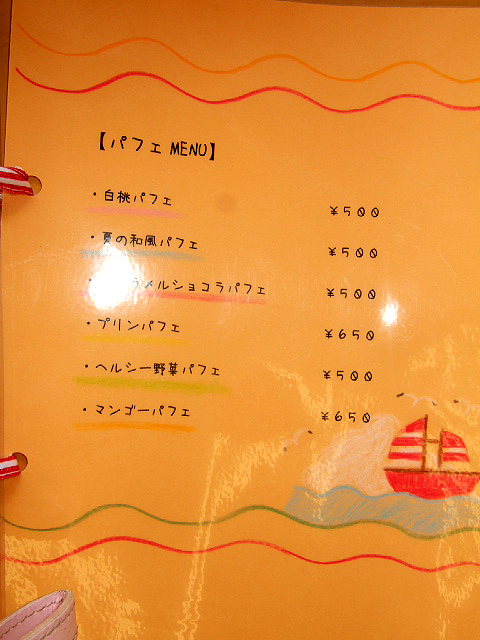 【パフェ MENU】
・白桃パフェ ¥500
・夏の和風パフェ ¥500
ラメルショコラパフェ ¥500
・プリンパフェ ¥650
・ヘルシー野菜パフェ ¥500
・マンゴーパフェ ¥650